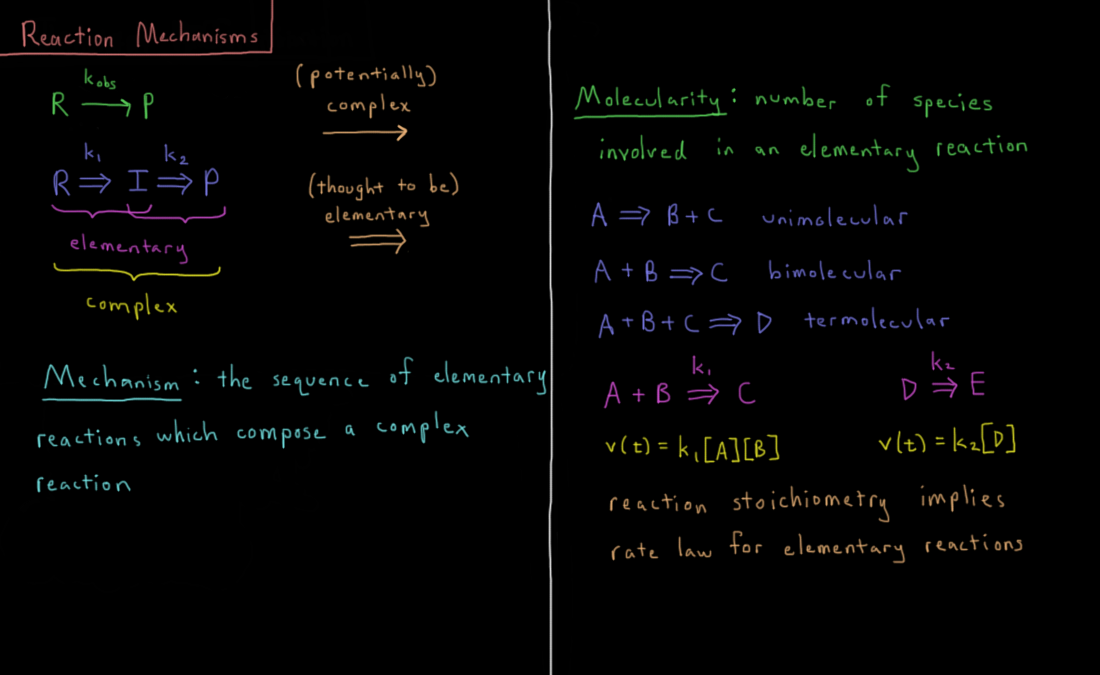 Reaction Mechanisms
k_obs
R → P
k₁ k₂
R ⇒ I ⇒ P
elementary
complex
(potentially)
complex
→
(thought to be)
elementary
⇒
Mechanism: the sequence of elementary
reactions which compose a complex
reaction
Molecularity: number of species
involved in an elementary reaction
A ⇒ B + C unimolecular
A + B ⇒ C bimolecular
A + B + C ⇒ D termolecular
k₁ k₂
A + B ⇒ C D ⇒ E
v(t) = k₁[A][B] v(t) = k₂[D]
reaction stoichiometry implies
rate law for elementary reactions